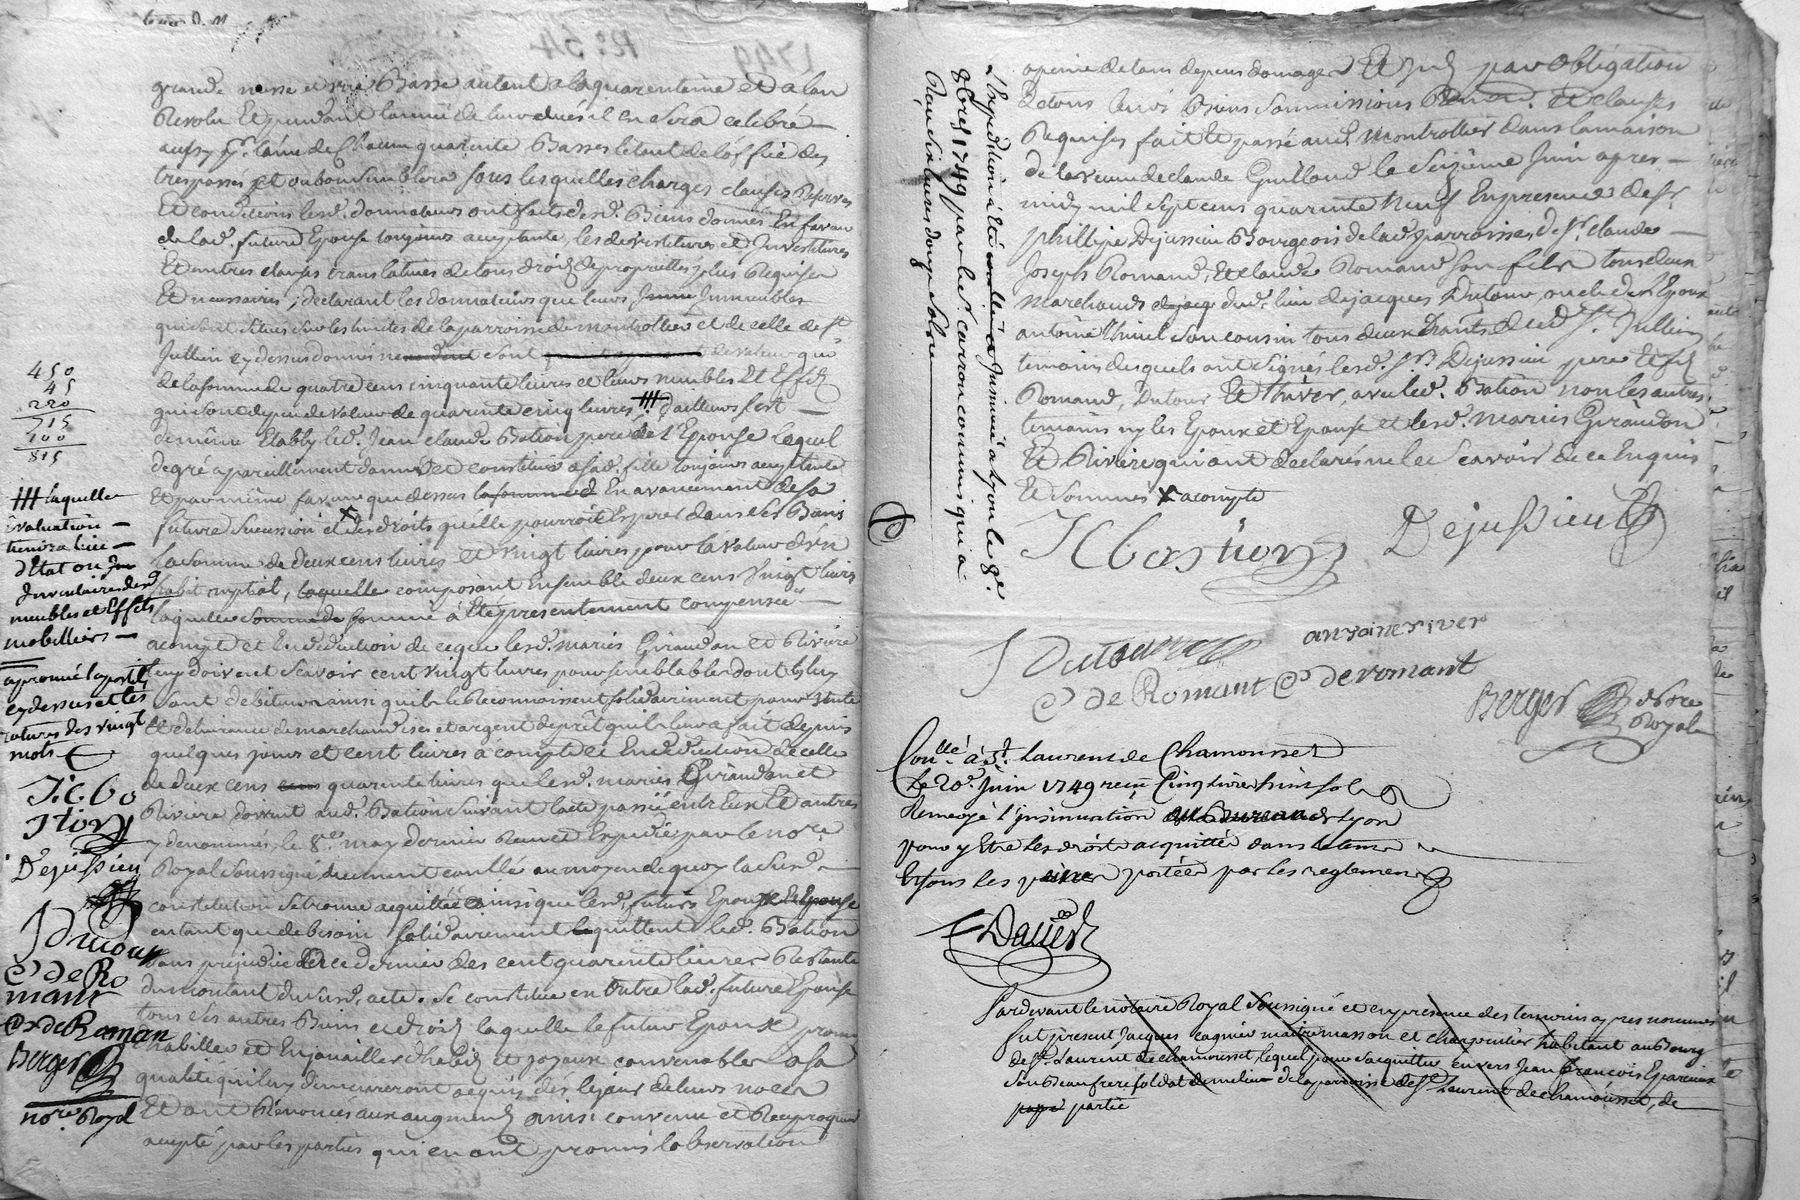 grande messe et six Basse autant a la quarentaine et a l'an
Revolu Et pendant l'année de leur deués il en sera celebré
aud. St. Laurent de Cham. quarente Basses le tout de l'office des
trespassés et ou bon semblera sous lesquelles charges clauses Reserves
Et conditions lesd. donnateurs ont faits desd. Biens donnés En faveur
de lad. future Epouse toujours acceptante, les devestitures et Investitures
Et autres clauses translatives de tous droits de proprietté plus Requises
Et necessaires, declarant les donnateurs que leurs Immeubles
qui sont situés sur les limites de la parroisse de montrottier et de celle de St.
Jullien cy dessus donnés sont de valeur que
de la somme de quatre cens cinquante livres et leurs meubles Et Effets
qui sont de peu de valeur de quarente cinq livres # d'ailleurs s'est
de même Etably led. Jean claude Bation pere de l'Epouse Lequel
de gré a pareillement donné et constitué a sad. fille toujours acceptante
Et par même faveur que dessus En avancement de sa
future succession et des droits qu'elle pourroit Esperer dans ses Biens
la somme de deux cens livres et vingt livres pour la valeur d'un
habit nuptial, laquelle composant Ensemble deux cens vingt livres
laquelle somme a Eté presentement compensée
acompte et En deduction de ce que lesd. mariés Giraudon et Riviere
luy doivent Scavoir cent vingt livres pour semblable dont ils luy
sont debiteurs ainsi qu'ils le Reconnoissent solidairement pour vente
et delivrance de marchandises et argent de prêt qu'il leur a fait depuis
quelques jours et cent livres a compte et En deduction de celle
de deux cens quarente livres que lesd. mariés Giraudon et
Riviere doivent aud. Bation suivant l'acte passé entr'Eux Et autres
y denommés, le 8e. may dernier Receu et Expedié par le nore.
Royal soussigné, duement conllé au moyen de quoy la susd.
constitution se trouve acquittée ainsi que lesd. futurs Epoux et Epouse
en tant que de besoin solidairement quittent led. Bation
sans prejudice a ce dernier des cent quarente livres Restante
du montant du susd. acte. Se constitue en outre lad. future Epouse
tous ses autres Biens et droits laquelle le futur Epoux promet
habiller et Enjoüailler d'habits et joyaux convenables a sa
qualité qui luy demeureront acquis dès le jour de leurs noces
Et ont Renoncé aux augments ainsi convenu et Reciproquement
accepté par les parties qui en ont promis l'observation
450
45
220
715
100
815
# laquelle
évaluation
tiendra lieu
d'Etat ou
Inventaire desd.
meubles et Effets
mobilliers
aprouvé l'apostil
cy dessus et les
ratures des vingt
mots
J: c bo
stion
Dejussieu
J dutour
C de Ro
mant
C de Roman
Berger
nore. Royal
L'Expedition a Eté Insinué a Lyon le 9e.
8bre 1749 par le Sr. carron commis qui a
Reçu six livres douze sols
a peine de tous depens domages Et Int. par obligation
de tous leurs Biens soumissions Renon. et clauses
Requises fait et passé aud. Montrottier dans la maison
de la veuve de claude Guilloud le seizieme Juin apres
midy mil sept cens quarente neuf En presence de Sr.
phillipe Dejussieu Bourgeois de lad. parroisse, de Sr. claude
Joseph Romand, Et claude Romand son fils tous deux
marchands dud. lieu de jacques Dutour, oncle de l'Epoux
antoine thivel son cousin tous deux dud. St. Jullien
temoins desquels ont signés lesd. Srs. Dejussieu pere Et fils
Romand, Dutour Et thiver, avec led. Bation non les autres
temoins ny les Epoux et Epouse et lesd. mariés Giraudon
Et Riviere qui ont declarés ne le Scavoir de ce Enquis
Et Sommés X acompte
J C bastion
Dejussieu
J Dutour
antoine tiver
C de Romant C de romant
Berger nore Royal
Conllé. à St. Laurent de Chamousset
Le 20e. Juin 1749 reçu Cinq livres huit sols
Renvoyé à l'insinuation au Bureau de Lyon
pour y Etre les droits acquittés dans le tems
Et sous les peines portées par les reglemens
Dauer
Pardevant le notaire Royal Soussigné et en presence des temoins apres nommés
fut present Jacques cagnie maitre masson et charpentier habitant au Bourg
de St. Laurent de chamousset, lequel pour s'acquitter envers Jean francois Eparcieux
son Beaufrere soldat de milice de la parroisse de St. Laurent de chamousset, de
partie